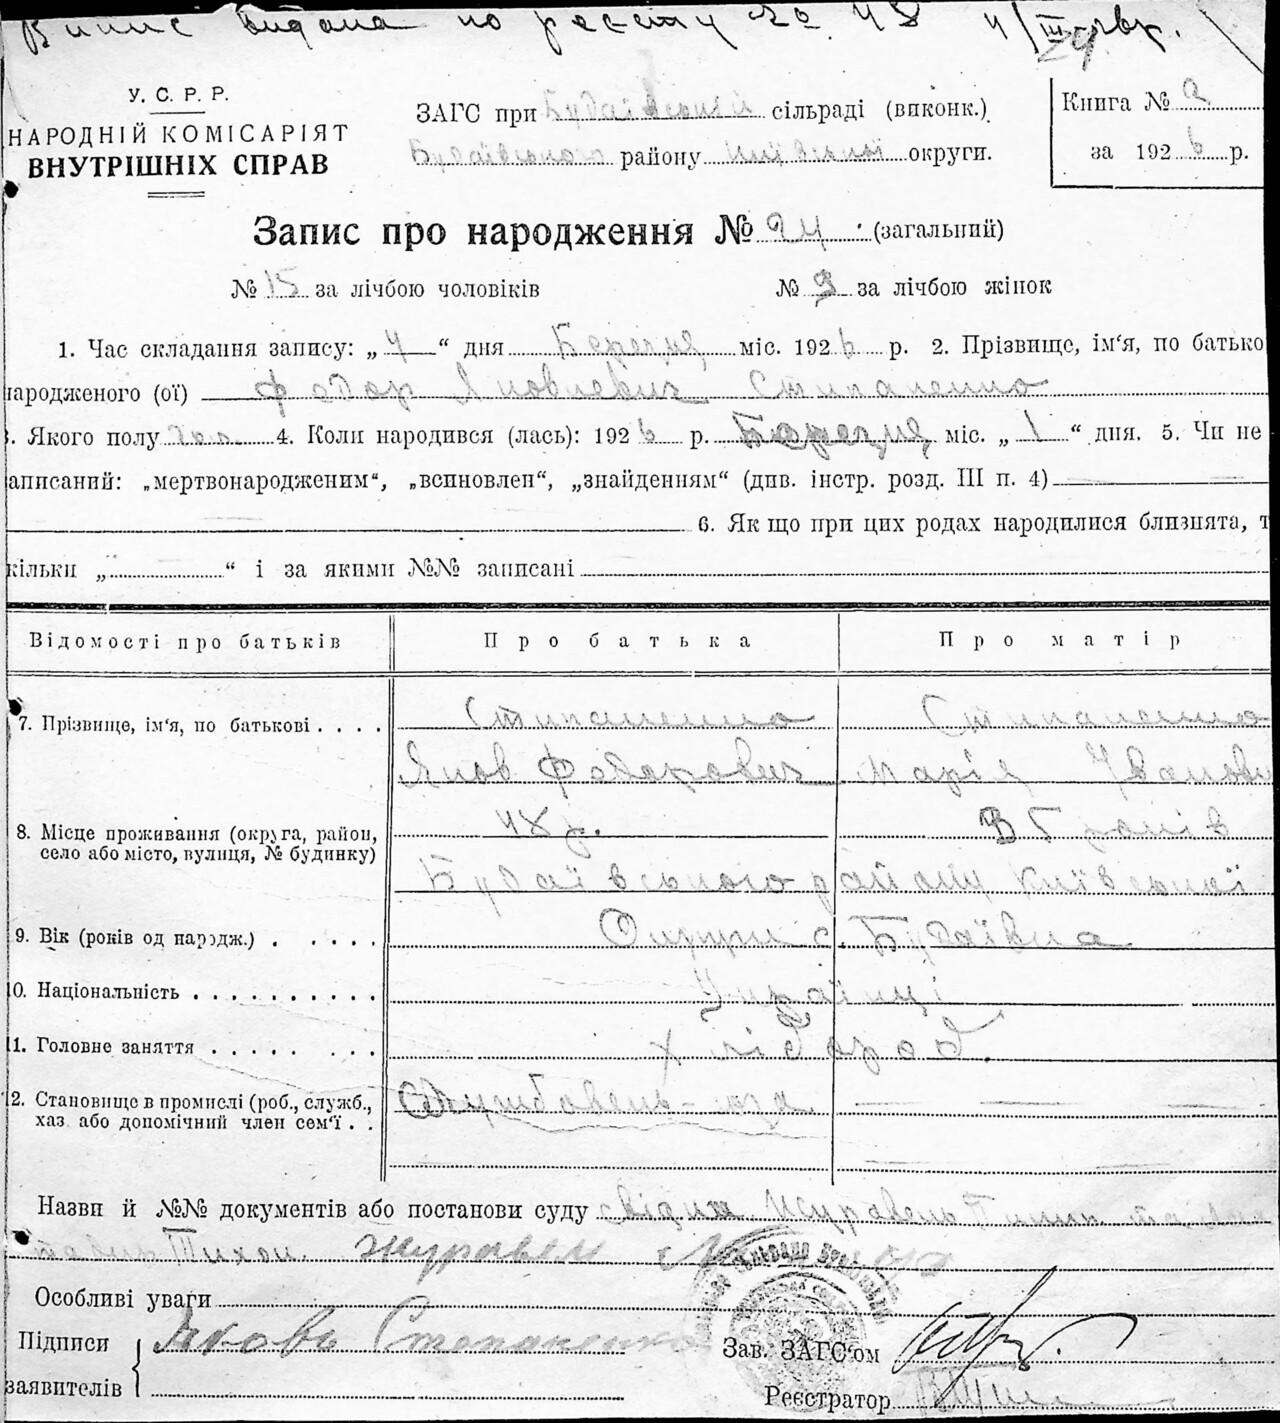 Випис видана по реєстру № 48 4/III
У. С. Р. Р.
НАРОДНІЙ КОМІСАРІЯТ
ВНУТРІШНІХ СПРАВ
ЗАГС при Будаївській сільраді (виконк.)
Будаївського району Київської округи.
Книга №
за 1926 р.
Запис про народження № 24 (загальний)
№ 15 за лічбою чоловіків № 9 за лічбою жінок
1. Час складання запису: „4“ дня Березня міс. 1926 р. 2. Прізвище, ім'я, по батько
народженого (ої) Фодор Яковлевич Стипаненко
3. Якого полу чол. 4. Коли народився (лась): 1926 р. Березня міс. „1“ дня. 5. Чи не
аписаний: „мертвонародженим“, „всиновлен“, „знайденням“ (див. інстр. розд. III п. 4)
6. Як що при цих родах народилися близнята, т
кільки „ “ і за якими №№ записані
Відомості про батьків Про батька Про матір
7. Прізвище, ім'я, по батькові . . . . Стипаненко Стипаненко
Яков Фодорович Марія Іванови
8. Місце проживання (округа, район, село або місто, вулиця, № будинку) 48 р. 35 років
Будаївського району Київської
9. Вік (років од народж.) . . . . . . Округи с. Будаївка
10. Національність . . . . . . . . . . Українці
11. Головне заняття . . . . . . . . Хлібороб.
12. Становище в промислі (роб., служб., хаз. або допомічний член сем'ї . . Службовець – — — —
Назви й №№ документів або постанови суду свідки Журавель та
Тихон Журавель
Особливі уваги
Підписи Яковь Степаненко Зав. ЗАГС'ом
заявителів Реєстратор